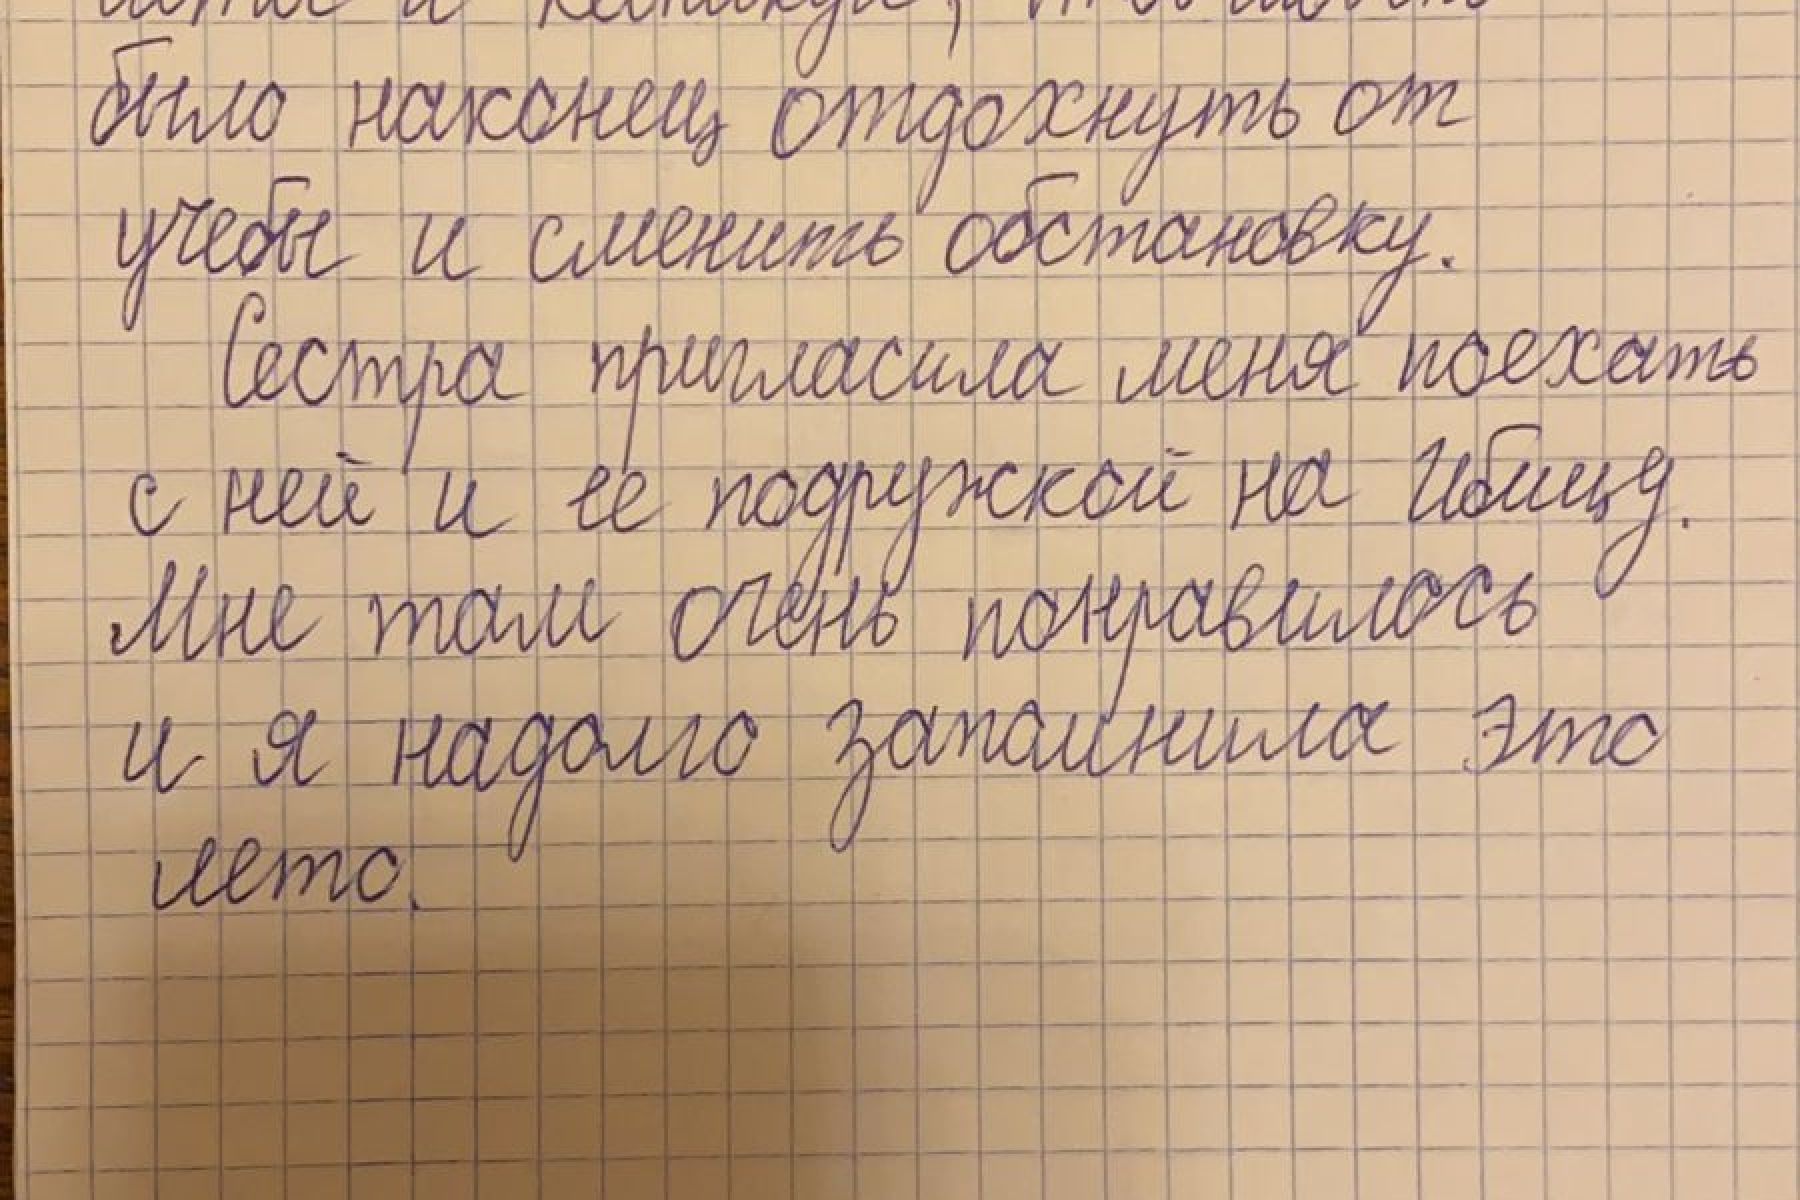 и каникул,
было наконец отдохнуть от
учебы и сменить обстановку.
Сестра пригласила меня поехать
с ней и ее подружкой на Ибицу.
Мне там очень понравилось
и я надолго запомнила это
лето.